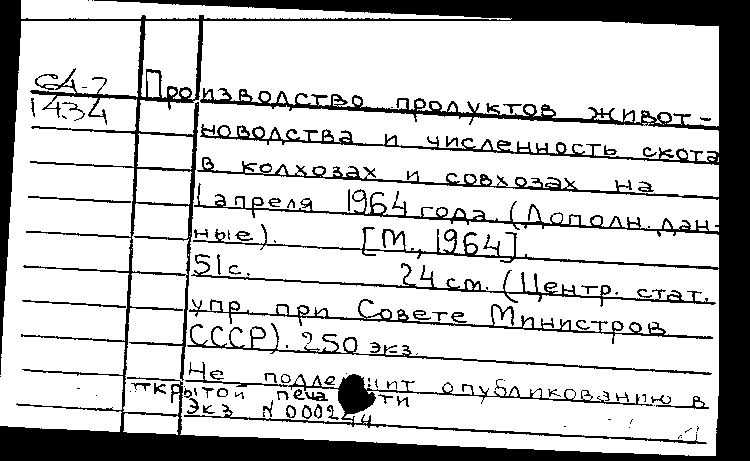 СА-7
1434
Производство продуктов живот-
новодства и численность скота
в колхозах и совхозах на
1 апреля 1964 года. (Дополн. дан-
ные). [М., 1964].
51 с. 24 см. (Центр. стат.
упр. при Совете Министров
СССР). 250 экз.
Не подлежит опубликованию в
ткрытой печати
Экз N 000244